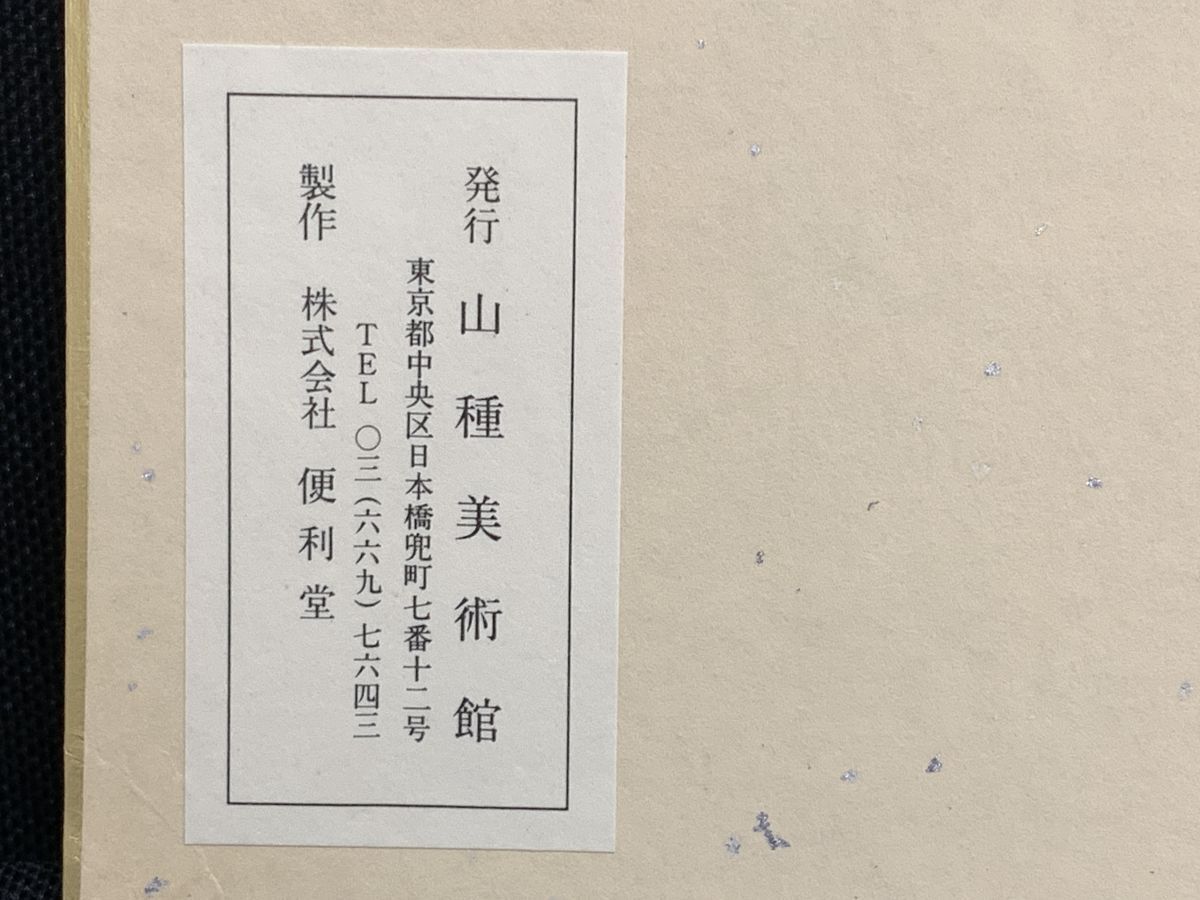 発行 山種美術館
東京都中央区日本橋兜町七番十二号
TEL 〇三(六六九)七六四三
製作 株式会社 便利堂